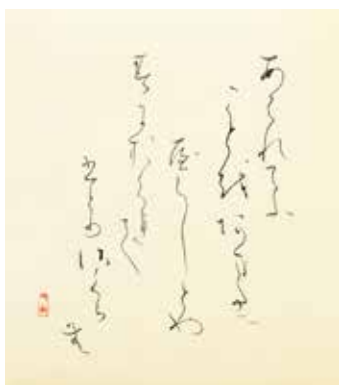 あはれてふ
ことをあまたに
やらしとや
春におくれ
て
ひとりさくら
む